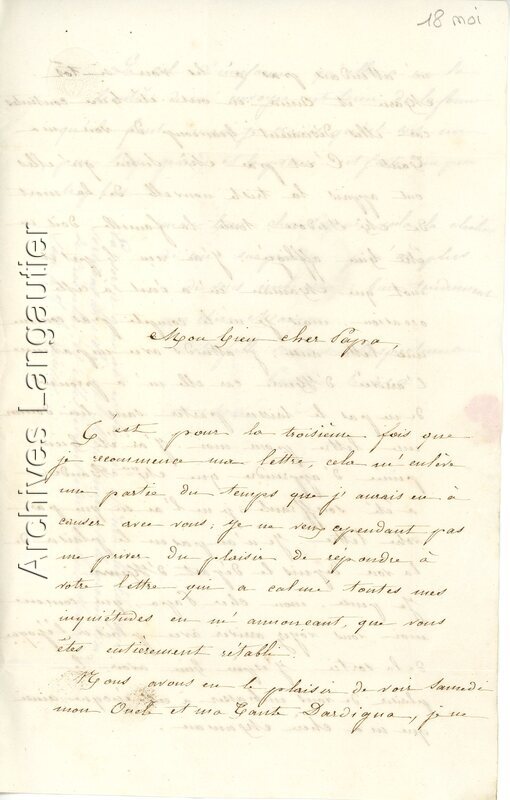 18 mai
Archives Langautier
Mon bien cher Papa,
C'est pour la troisième fois que
je recommence ma lettre, cela m'enlève
une partie du temps que j'aurais eu à
causer avec vous; je ne veux cependant pas
me priver du plaisir de répondre à
votre lettre qui a calmé toutes mes
inquiétudes en m'annonçant, que vous
êtes entièrement rétabli.
Nous avons eu le plaisir de voir samedi
mon Oncle et ma Tante Dardigna, je ne